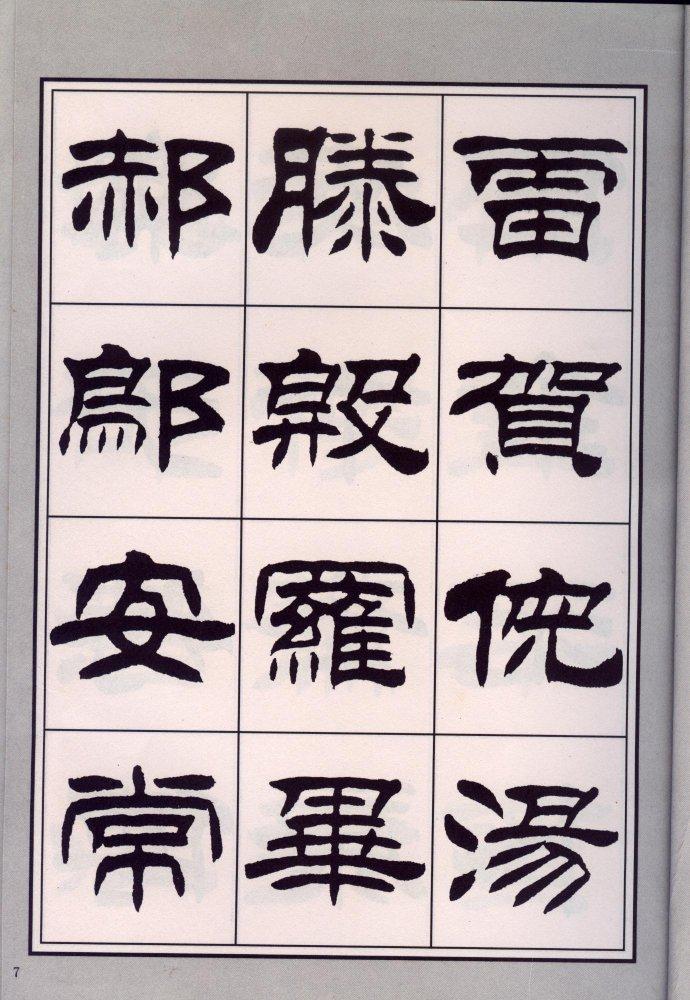 雷賀倪湯
滕殷羅畢
郝鄔安常
7